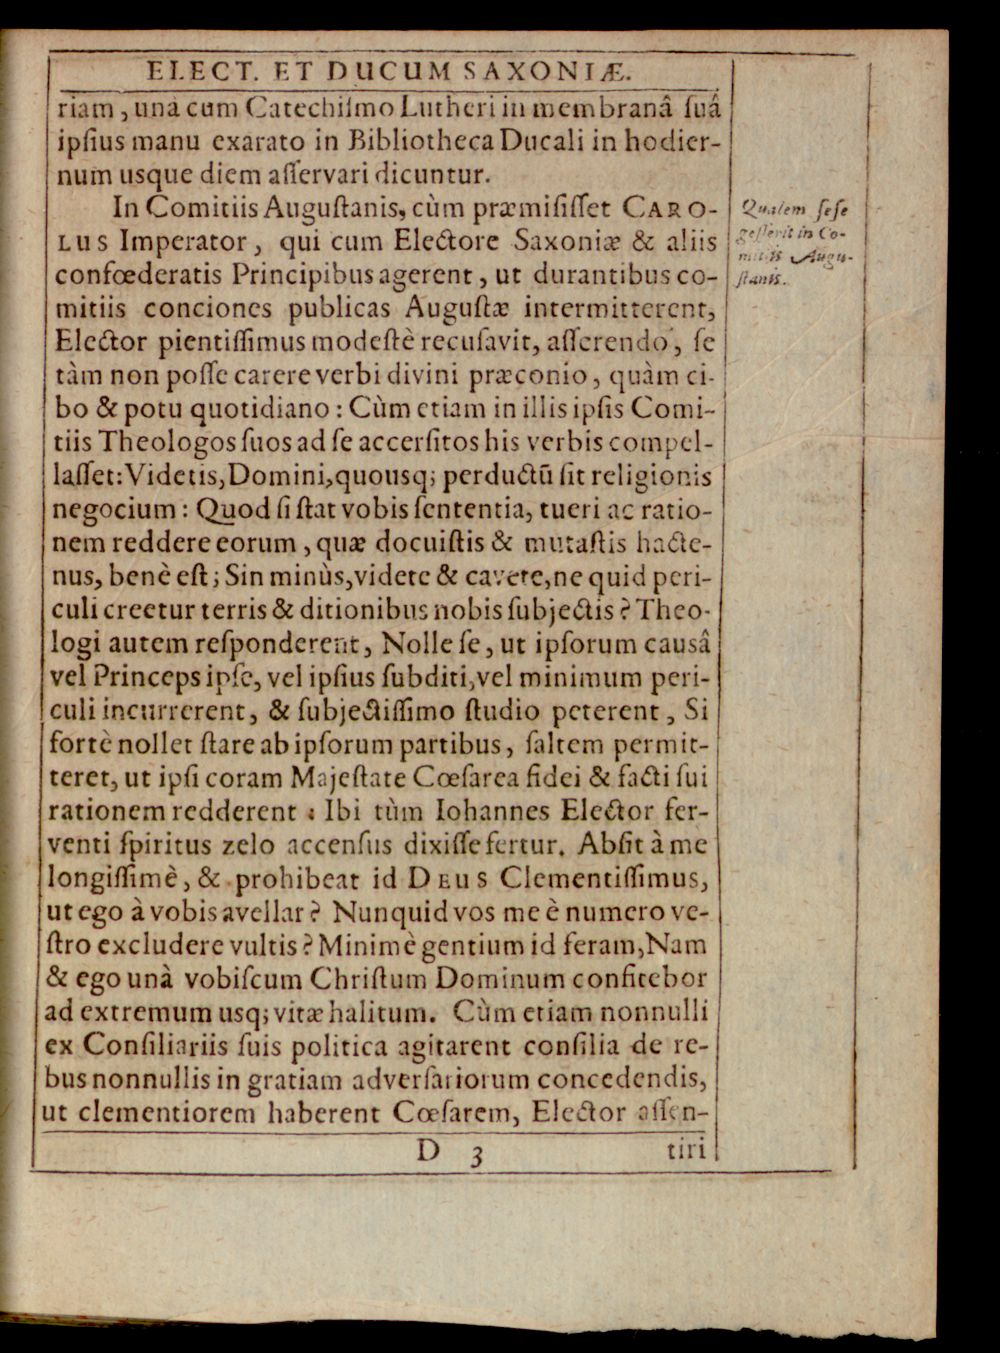 ELECT. ET DUCUM SAXONIÆ.
riam, una cum Catechiſmo Lutheri in membranâ ſuâ
ipſius manu exarato in Bibliotheca Ducali in hodier-
num usque diem aſſervari dicuntur.
In Comitiis Auguſtanis, cùm præmiſiſſet CARO-
LUS Imperator, qui cum Electore Saxoniæ & aliis
confœderatis Principibus agerent, ut durantibus co-
mitiis conciones publicas Auguſtæ intermitterent,
Elector pientiſſimus modeſtè recuſavit, aſſerendo, ſe
tàm non poſſe carere verbi divini præconio, quàm ci-
bo & potu quotidiano: Cùm etiam in illis ipſis Comi-
tiis Theologos ſuos ad ſe accerſitos his verbis compel-
laſſet: Videtis, Domini, quousq; perductū ſit religionis
negocium: Quod ſi ſtat vobis ſententia, tueri ac ratio-
nem reddere eorum, quæ docuiſtis & mutaſtis hacte-
nus, benè eſt; Sin minùs, videte & cavete, ne quid peri-
culi creetur terris & ditionibus nobis ſubjectis? Theo-
logi autem reſponderent, Nolle ſe, ut ipſorum causâ
vel Princeps ipſe, vel ipſius ſubditi, vel minimum peri-
culi incurrerent, & ſubjectiſſimo ſtudio peterent, Si
fortè nollet ſtare ab ipſorum partibus, ſaltem permit-
teret, ut ipſi coram Majeſtate Cœſarea fidei & facti ſui
rationem redderent: Ibi tùm Iohannes Elector fer-
venti ſpiritus zelo accenſus dixiſſe fertur. Abſit à me
longiſſimè, & prohibeat id DEUS Clementiſſimus,
ut ego à vobis avellar? Nunquid vos me è numero ve-
ſtro excludere vultis? Minimè gentium id feram, Nam
& ego unà vobiſcum Chriſtum Dominum confitebor
ad extremum usq; vitæ halitum. Cùm etiam nonnulli
ex Conſiliariis ſuis politica agitarent conſilia de re-
bus nonnullis in gratiam adverſariorum concedendis,
ut clementiorem haberent Cœſarem, Elector aſſen-
D 3 tiri
Qualem ſeſe
geſſerit in Co-
mitiis Augu-
ſtanis.